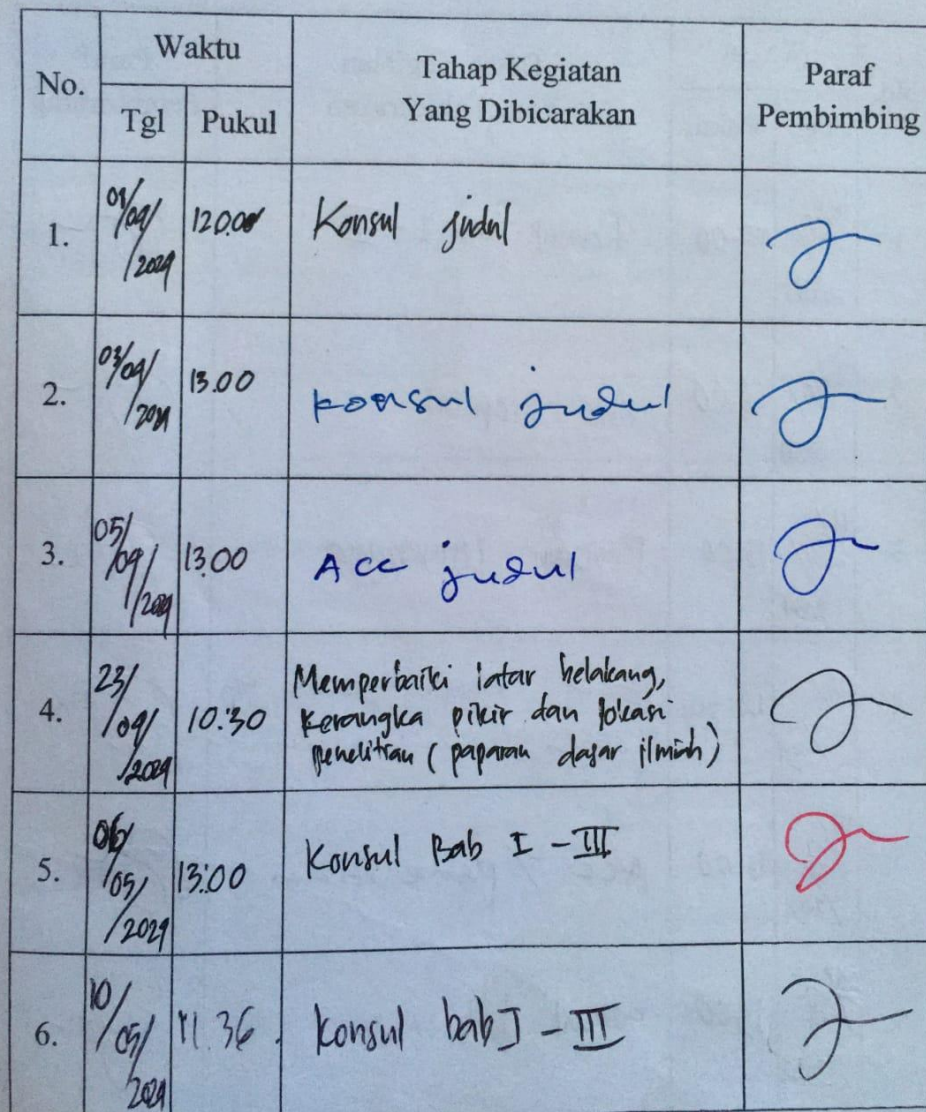 No.
Waktu
Tgl
Pukul
Tahap Kegiatan
Yang Dibicarakan
Paraf
Pembimbing
1.
/04/
/2024
12.00
Konsul judul
2.
03/04/
/2024
13.00
Konsul judul
3.
05/
/04/
/2024
13.00
Acc judul
4.
23/
/04/
/2024
10.30
Memperbaiki latar belakang,
Kerangka pikir dan lokasi
penelitian (paparan dasar ilmiah)
5.
06/
/05/
/2024
13:00
Konsul Bab I - III
6.
10/
/05/
2024
11.36
Konsul bab I - III